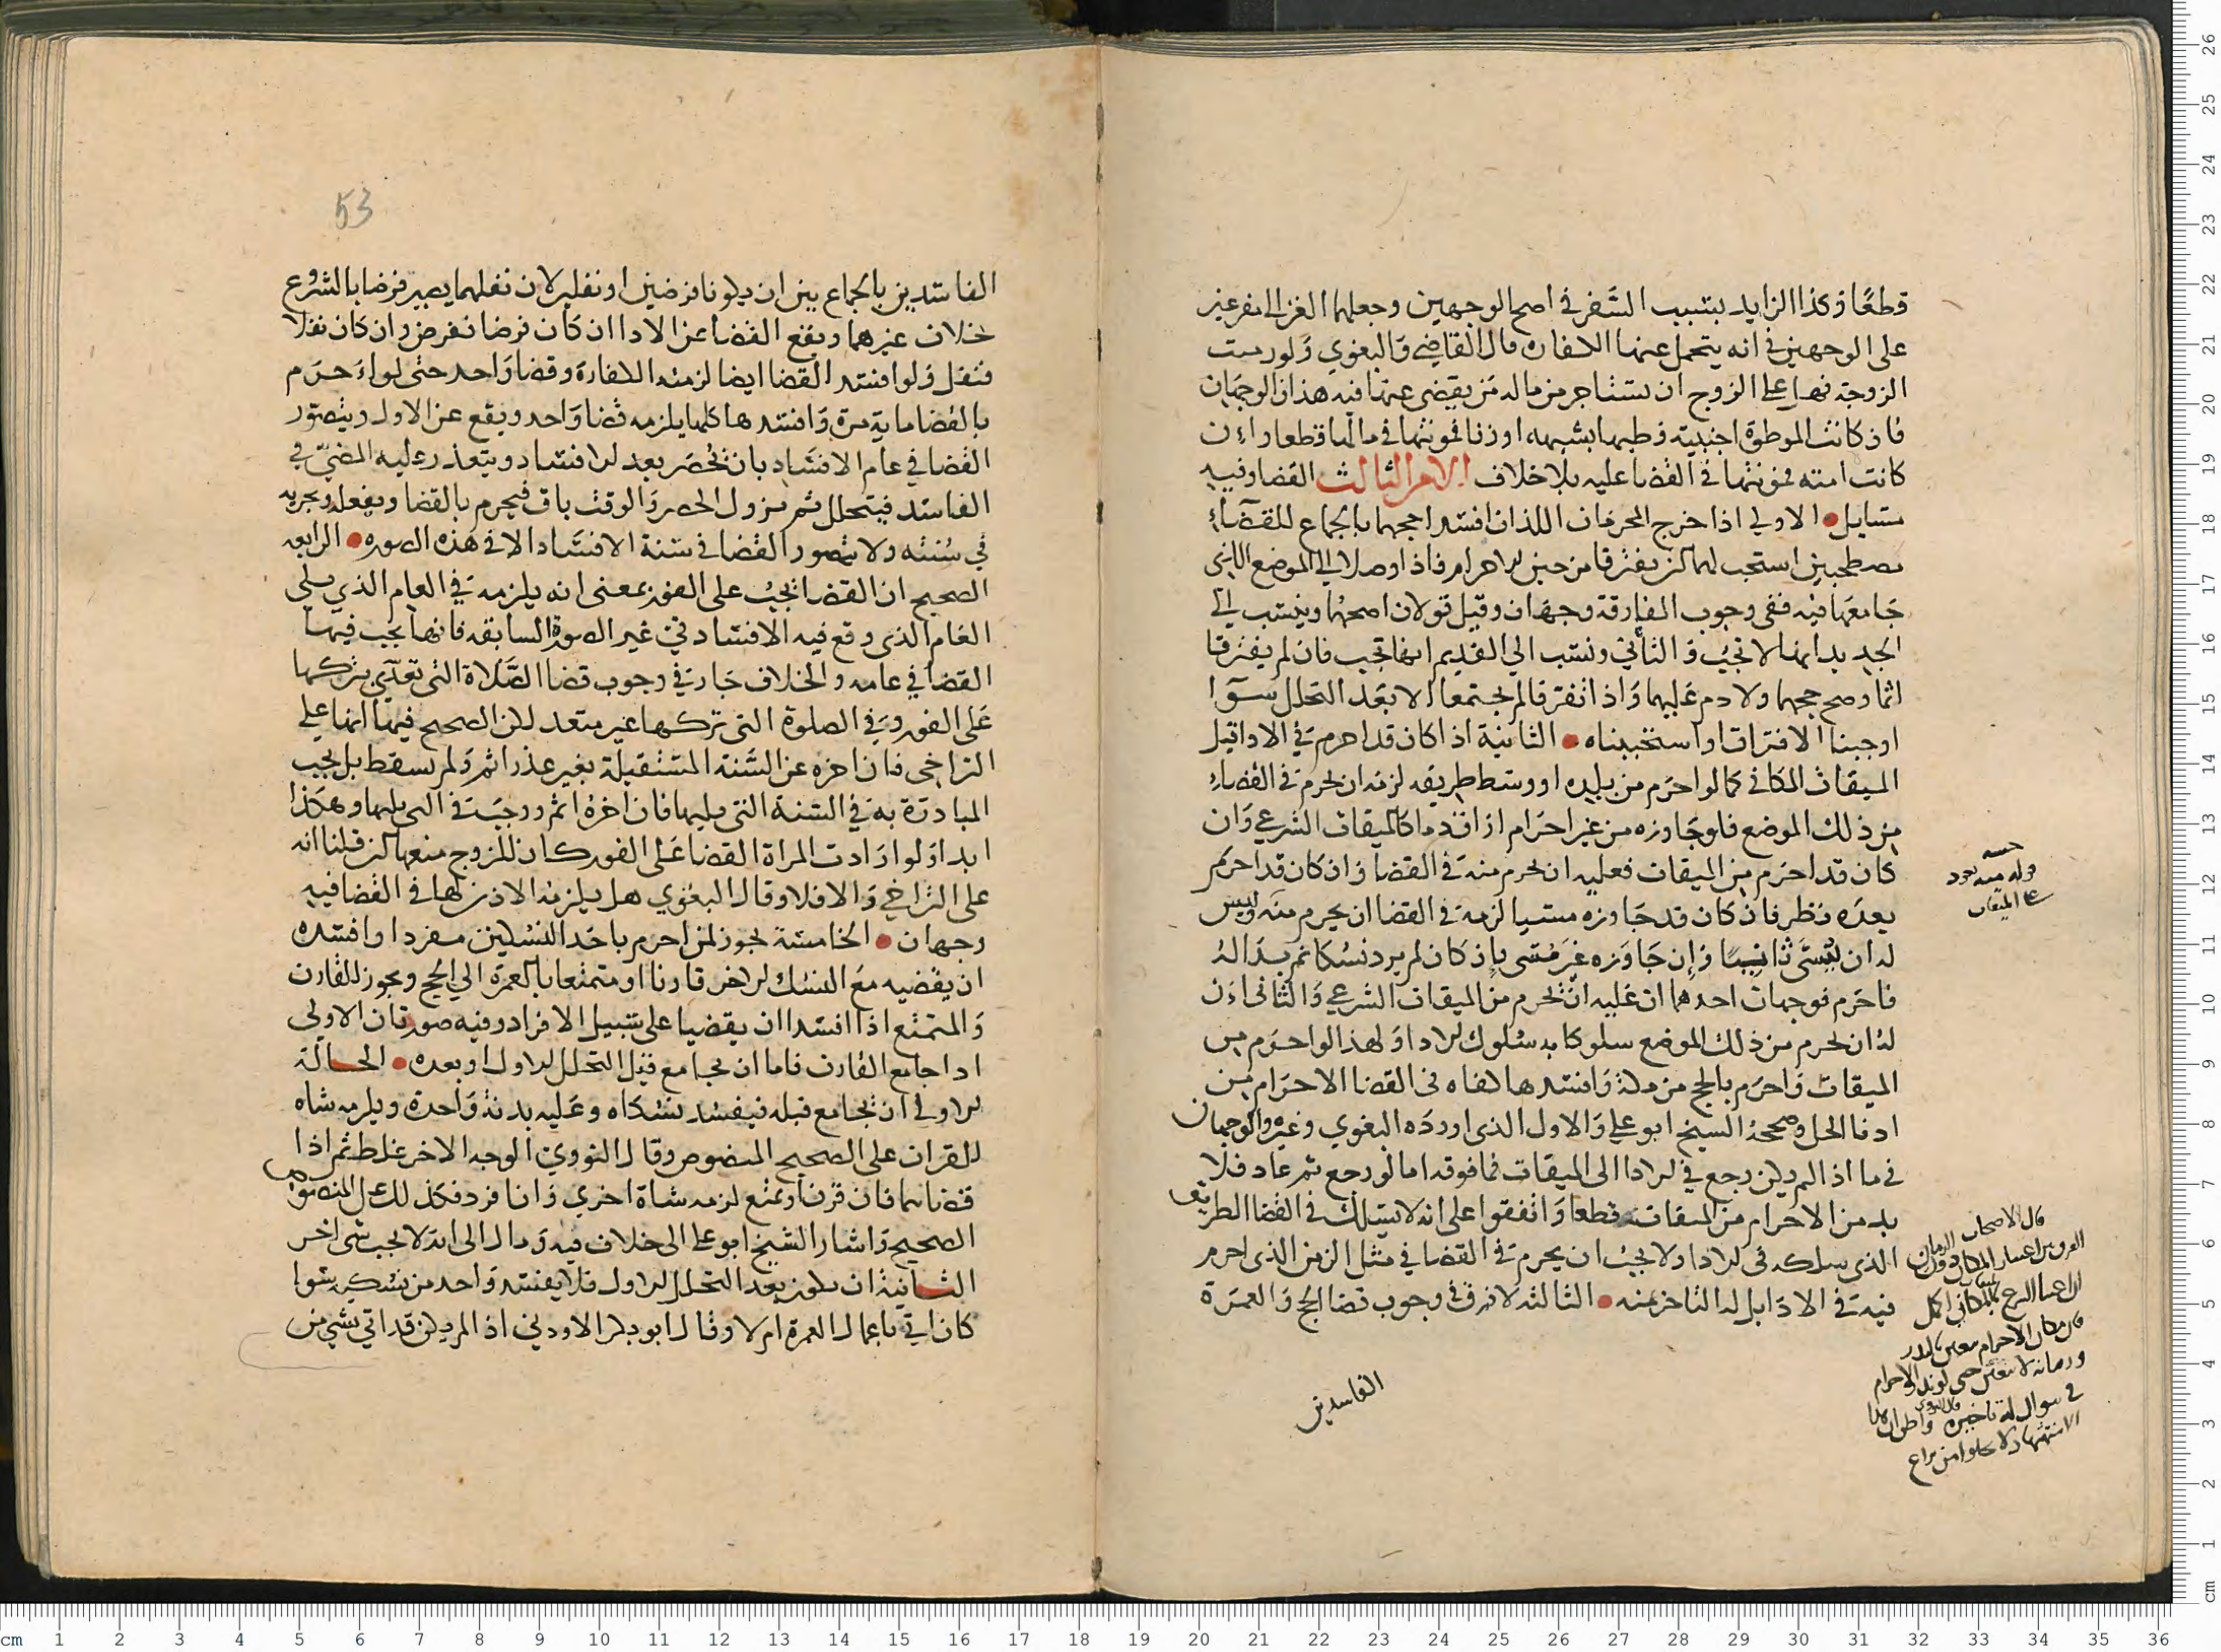 قطعًا وكذا الزايد بسبب السَّفر في اصح الوجهين وجعلهما الغزالي مفرعين
على الوجهين في انه يتحمل عنها الكفاره قال القاضي والبغوي ولو رمنت
الزوجة فهل على الزوج ان يستاجر من ماله مَن يقضي عنها فيه هذان الوجهان
فان كانت الموطوة اجنبية وطيها بشبهه او زنا فمونتها في مالها قطعا وان
كانت امته فمونتها في القضا عليه بلا خلاف الامر الثالث القضا وفيه
مسايل الاولي اذا خرج المحرمان اللذان افسدا حجهما بالجماع للقضاء
مصطحبين استحب لهما ان يفترقا من حين الاحرام فاذا وصلا الي الموضع الذي
جامعها فيه ففي وجوب المفارقة وجهان وقيل قولان اصحهما وينسب الي
الجديد انها لا تجب والثاني ونسب الي القديم انها تجب فان لم يفترقا
اثما وصح حجهما ولا دم عليهما واذا تفرقا لم يجتمعا الا بعد التحلل سوا
اوجبنا الافتراق او استحببناه الثانية اذا كان قد احرم في الادا قبل
الميقات المكاني كما لو احرم من بلده او وسط طريقه لزمه ان يحرم في القضاء
من ذلك الموضع فلو جاوزه من غير احرام اراق دما كالميقات الشرعي وان
كان قد احرم من الميقات فعليه ان يحرم منه في القضا وان كان قد احرم
بعده نظر فان كان قد جاوزه مسيا لزمه في القضا ان يحرم منه وليس
له ان يسَّى ثانيًا وان جاوزه غير مسى بان كان لم يرد نسكا ثم بدا له
فاحرم فوجهان احدهما ان عليه ان يحرم من الميقات الشرعي والثاني ان
له ان يحرم من ذلك الموضع سلوكا به سلوك الادا ولهذا لو احرم من
الميقات واحرم بالحج من مكة وافسدها كفاه في القضا الاحرام من
ادنا الحل وصححه الشيخ ابو علي والاول الذي اورده البغوي وغيره والوجهان
في ما اذا لم يكن رجع في الادا الى الميقات فما فوقه اما لو رجع ثم عاد فلا
بد من الاحرام من الميقات قطعا واتفقوا على انه لا يسلك في القضا الطريق
الذي سلكه في الادا ولا يجب ان يحرم في القضا في مثل الزمن الذي احرم
فيه في الادا بل له التاخر عنه الثالثه لا فرق في وجوب قضا الحج والعمرة
الفاسدين
قال الاصحاب
اعتبار المكان دون الزمان
فان مكان الاحرام يتعين بالنذر
وزمانه لا يتعين حتى لو نذر الاحرام
في شوال له تاخيره
53
الفاسدين بالجماع بين ان يكونا فرضين او نفلين لان نفلهما يصير فرضا بالشروع
خلاف غيرهما ويقع القضا عن الادا ان كان فرضا ففرض وان كان نفلا
فنفل ولو افسد القضا ايضا لزمته الكفارة وقضا واحد حتى لو احرم
بالقضا ماية مرة وافسدها كلها يلزمه قضا واحد ويقع عن الاول ويتصور
القضا في عام الافساد بان يحصر بعد الافساد ويتعذر عليه المضي في
الفاسد فيتحلل ثم يزول الحصر والوقت باق فيحرم بالقضا ويفعله ويجزيه
في سنته ولا يتصور القضا في سنة الافساد الا في هذه الصوره الرابعه
الصحيح ان القضا يجب على الفور بمعنى انه يلزمه في العام الذي يلي
العام الذي وقع فيه الافساد في غير الصورة السابقه فانها يجب فيها
القضا في عامه والخلاف جار في وجوب قضا الصَّلاة التي تعدّي بتركها
على الفور وفي الصلوة التي تركها غير متعد لكن الصحيح فيها انها علي
التراخي فان اخره عن السنة المستقبلة بغير عذر اثم ولم يسقط بل يجب
المبادرة به في السنة التي يليها فان اخره اثم ووجبت في التي يليها وهكذا
ابدا ولو ارادت المراة القضا على الفور كان للزوج منعها ان قلنا انه
على التراخي والا فلا وقال البغوي هل يلزمه الاذن لها في القضا فيه
وجهان الخامسة يجوز لمن احرم باحد النسكين مفردا وافسده
ان يقضيه مع النسك الاخر قارنا او متمتعا بالعمرة الي الحج ويجوز للقارن
والمتمتع اذا افسدا ان يقضيا على سبيل الافراد وفيه صورتان الاولي
اذا جامع القارن فاما ان يجامع قبل التحلل الاول او بعده الحالة
الاولي ان يجامع قبله فيفسد نسكاه وعليه بدنة واحدة ويلزمه شاه
للقران على الصحيح المنصوص وقال النووي الوجه الاخر غلط ثم اذا
قضاهما فان قرن او تمتع لزمه شاة اخري وان افرد فكذلك على المنصوص
الصحيح واشار الشيخ ابو علي الى خلاف فيه ومال الى انه لا يجب شي اخر
الثانية ان يكون بعد التحلل الاول فلا يفسد واحد من نسكيه سوا
كان اتي باعمال العمرة ام لا وقال ابو بكر الاودني اذا لم يكن قد اتي بشي من